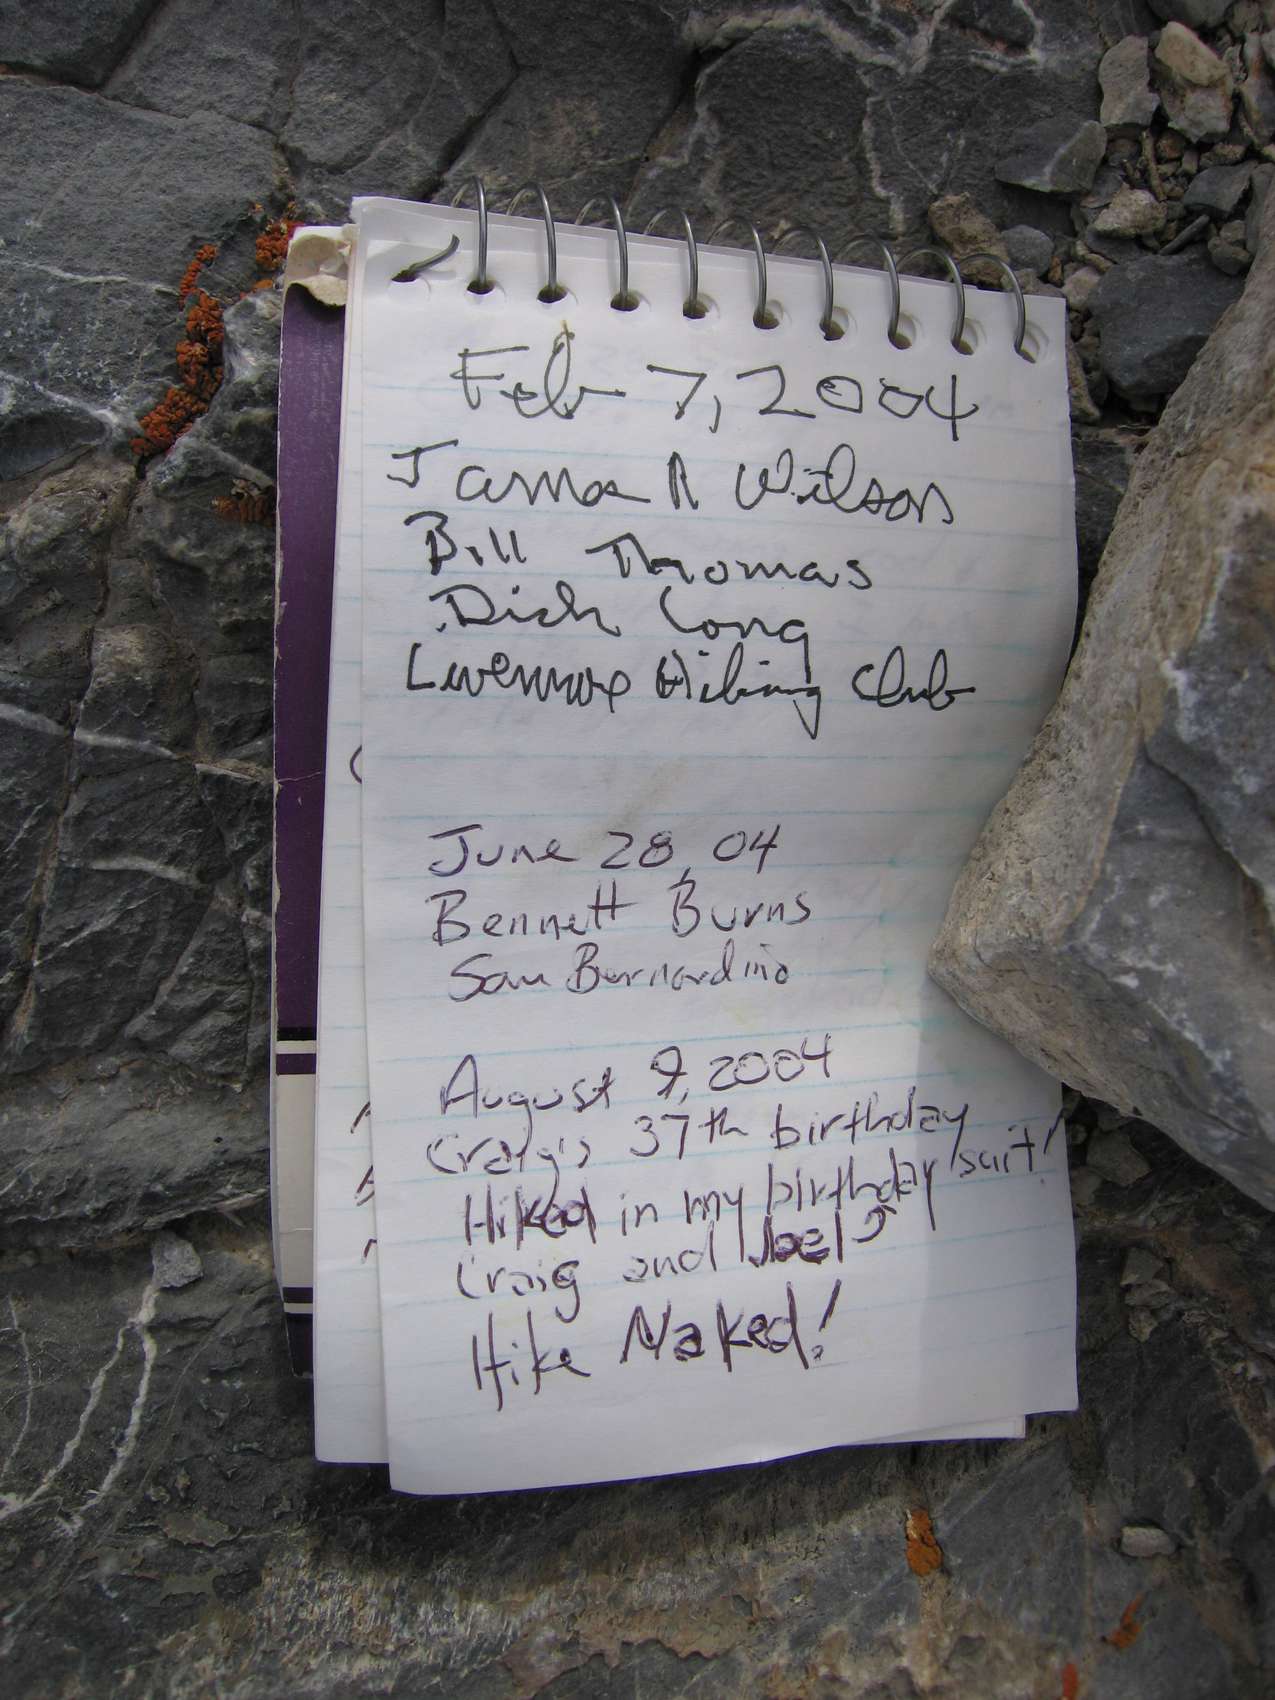 Feb 7, 2004
James R Wilson
Bill Thomas
Dick Long
Livermore Hiking Club
June 28, 04
Bennett Burns
San Bernardino
August 9, 2004
Craig's 37th birthday
Hiked in my birthday suit!
Craig and Joel
Hike Naked!